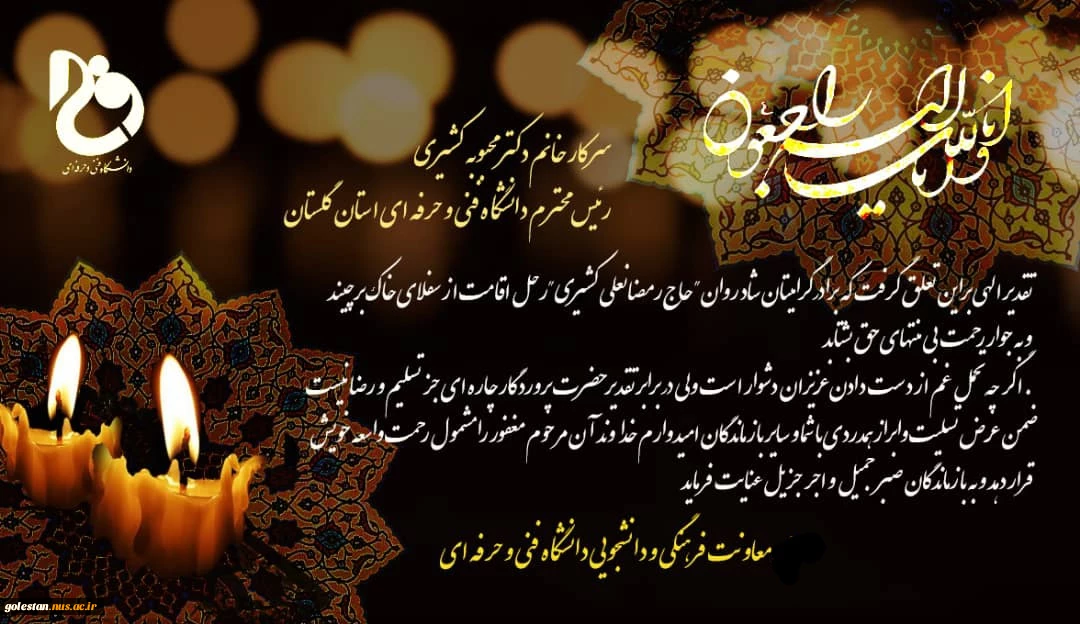 انا لله و انا الیه راجعون
دانشگاه فنی و حرفه ای
سرکار خانم دکتر محبوبه کشیری
رئیس محترم دانشگاه فنی و حرفه ای استان گلستان
تقدیر الهی بر این تعلق گرفت که برادر گرامیتان شادروان "حاج رمضانعلی کشیری" رحل اقامت از سفلای خاک برچیند
و به جوار رحمت بی منتهای حق بشتابد
. اگر چه تحمل غم از دست دادن عزیزان دشوار است ولی در برابر تقدیر حضرت پروردگار چاره ای جز تسلیم و رضا نیست
ضمن عرض تسلیت و ابراز همدردی با شما و سایر بازماندگان امیدوارم خداوند آن مرحوم مغفور را مشمول رحمت واسعه خویش
قرار دهد و به بازماندگان صبر جمیل و اجر جزیل عنایت فرماید
معاونت فرهنگی و دانشجویی دانشگاه فنی و حرفه ای
golestan.nus.ac.ir